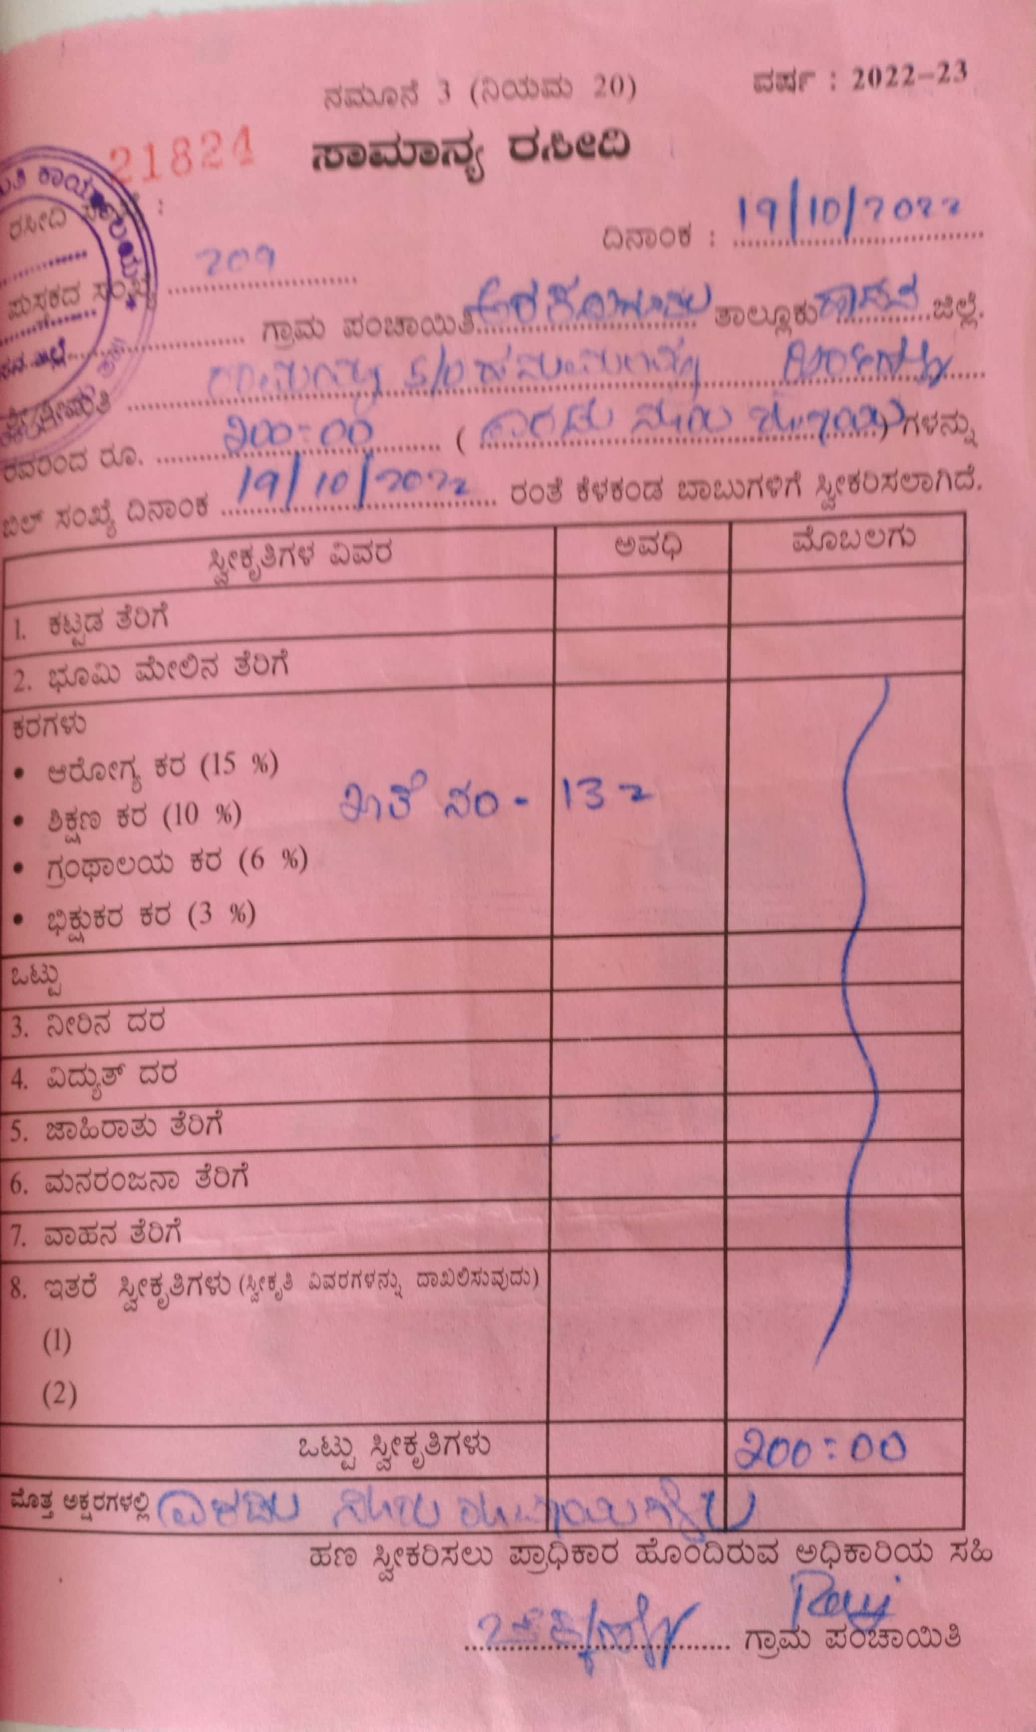 ನಮೂನೆ 3 (ನಿಯಮ 20) ವರ್ಷ : 2022-23
21824 ಸಾಮಾನ್ಯ ರಸೀದಿ
ರಸೀದಿ ಸಂಖ್ಯೆ :
ದಿನಾಂಕ : 19/10/2022
ಪುಸ್ತಕದ ಸಂಖ್ಯೆ 209
ಗ್ರಾಮ ಪಂಚಾಯಿತಿ ಅರಕಲಗೂಡು ತಾಲ್ಲೂಕು ಹಾಸನ ಜಿಲ್ಲೆ.
S/O
ರವರಿಂದ ರೂ. 200=00 ( ಎರಡು ನೂರು ರೂಪಾಯಿ ) ಗಳನ್ನು
ಬಿಲ್ ಸಂಖ್ಯೆ ದಿನಾಂಕ 19/10/2022 ರಂತೆ ಕೆಳಕಂಡ ಬಾಬುಗಳಿಗೆ ಸ್ವೀಕರಿಸಲಾಗಿದೆ.
ಸ್ವೀಕೃತಿಗಳ ವಿವರ ಅವಧಿ ಮೊಬಲಗು
1. ಕಟ್ಟಡ ತೆರಿಗೆ
2. ಭೂಮಿ ಮೇಲಿನ ತೆರಿಗೆ
ಕರಗಳು
• ಆರೋಗ್ಯ ಕರ (15 %)
• ಶಿಕ್ಷಣ ಕರ (10 %) ಖಾತೆ ನಂ - 132
• ಗ್ರಂಥಾಲಯ ಕರ (6 %)
• ಭಿಕ್ಷುಕರ ಕರ (3 %)
ಒಟ್ಟು
3. ನೀರಿನ ದರ
4. ವಿದ್ಯುತ್ ದರ
5. ಜಾಹಿರಾತು ತೆರಿಗೆ
6. ಮನರಂಜನಾ ತೆರಿಗೆ
7. ವಾಹನ ತೆರಿಗೆ
8. ಇತರೆ ಸ್ವೀಕೃತಿಗಳು (ಸ್ವೀಕೃತಿ ವಿವರಗಳನ್ನು ದಾಖಲಿಸುವುದು)
(1)
(2)
ಒಟ್ಟು ಸ್ವೀಕೃತಿಗಳು 200=00
ಮೊತ್ತ ಅಕ್ಷರಗಳಲ್ಲಿ ಎರಡು ನೂರು
ಹಣ ಸ್ವೀಕರಿಸಲು ಪ್ರಾಧಿಕಾರ ಹೊಂದಿರುವ ಅಧಿಕಾರಿಯ ಸಹಿ
ಗ್ರಾಮ ಪಂಚಾಯಿತಿ